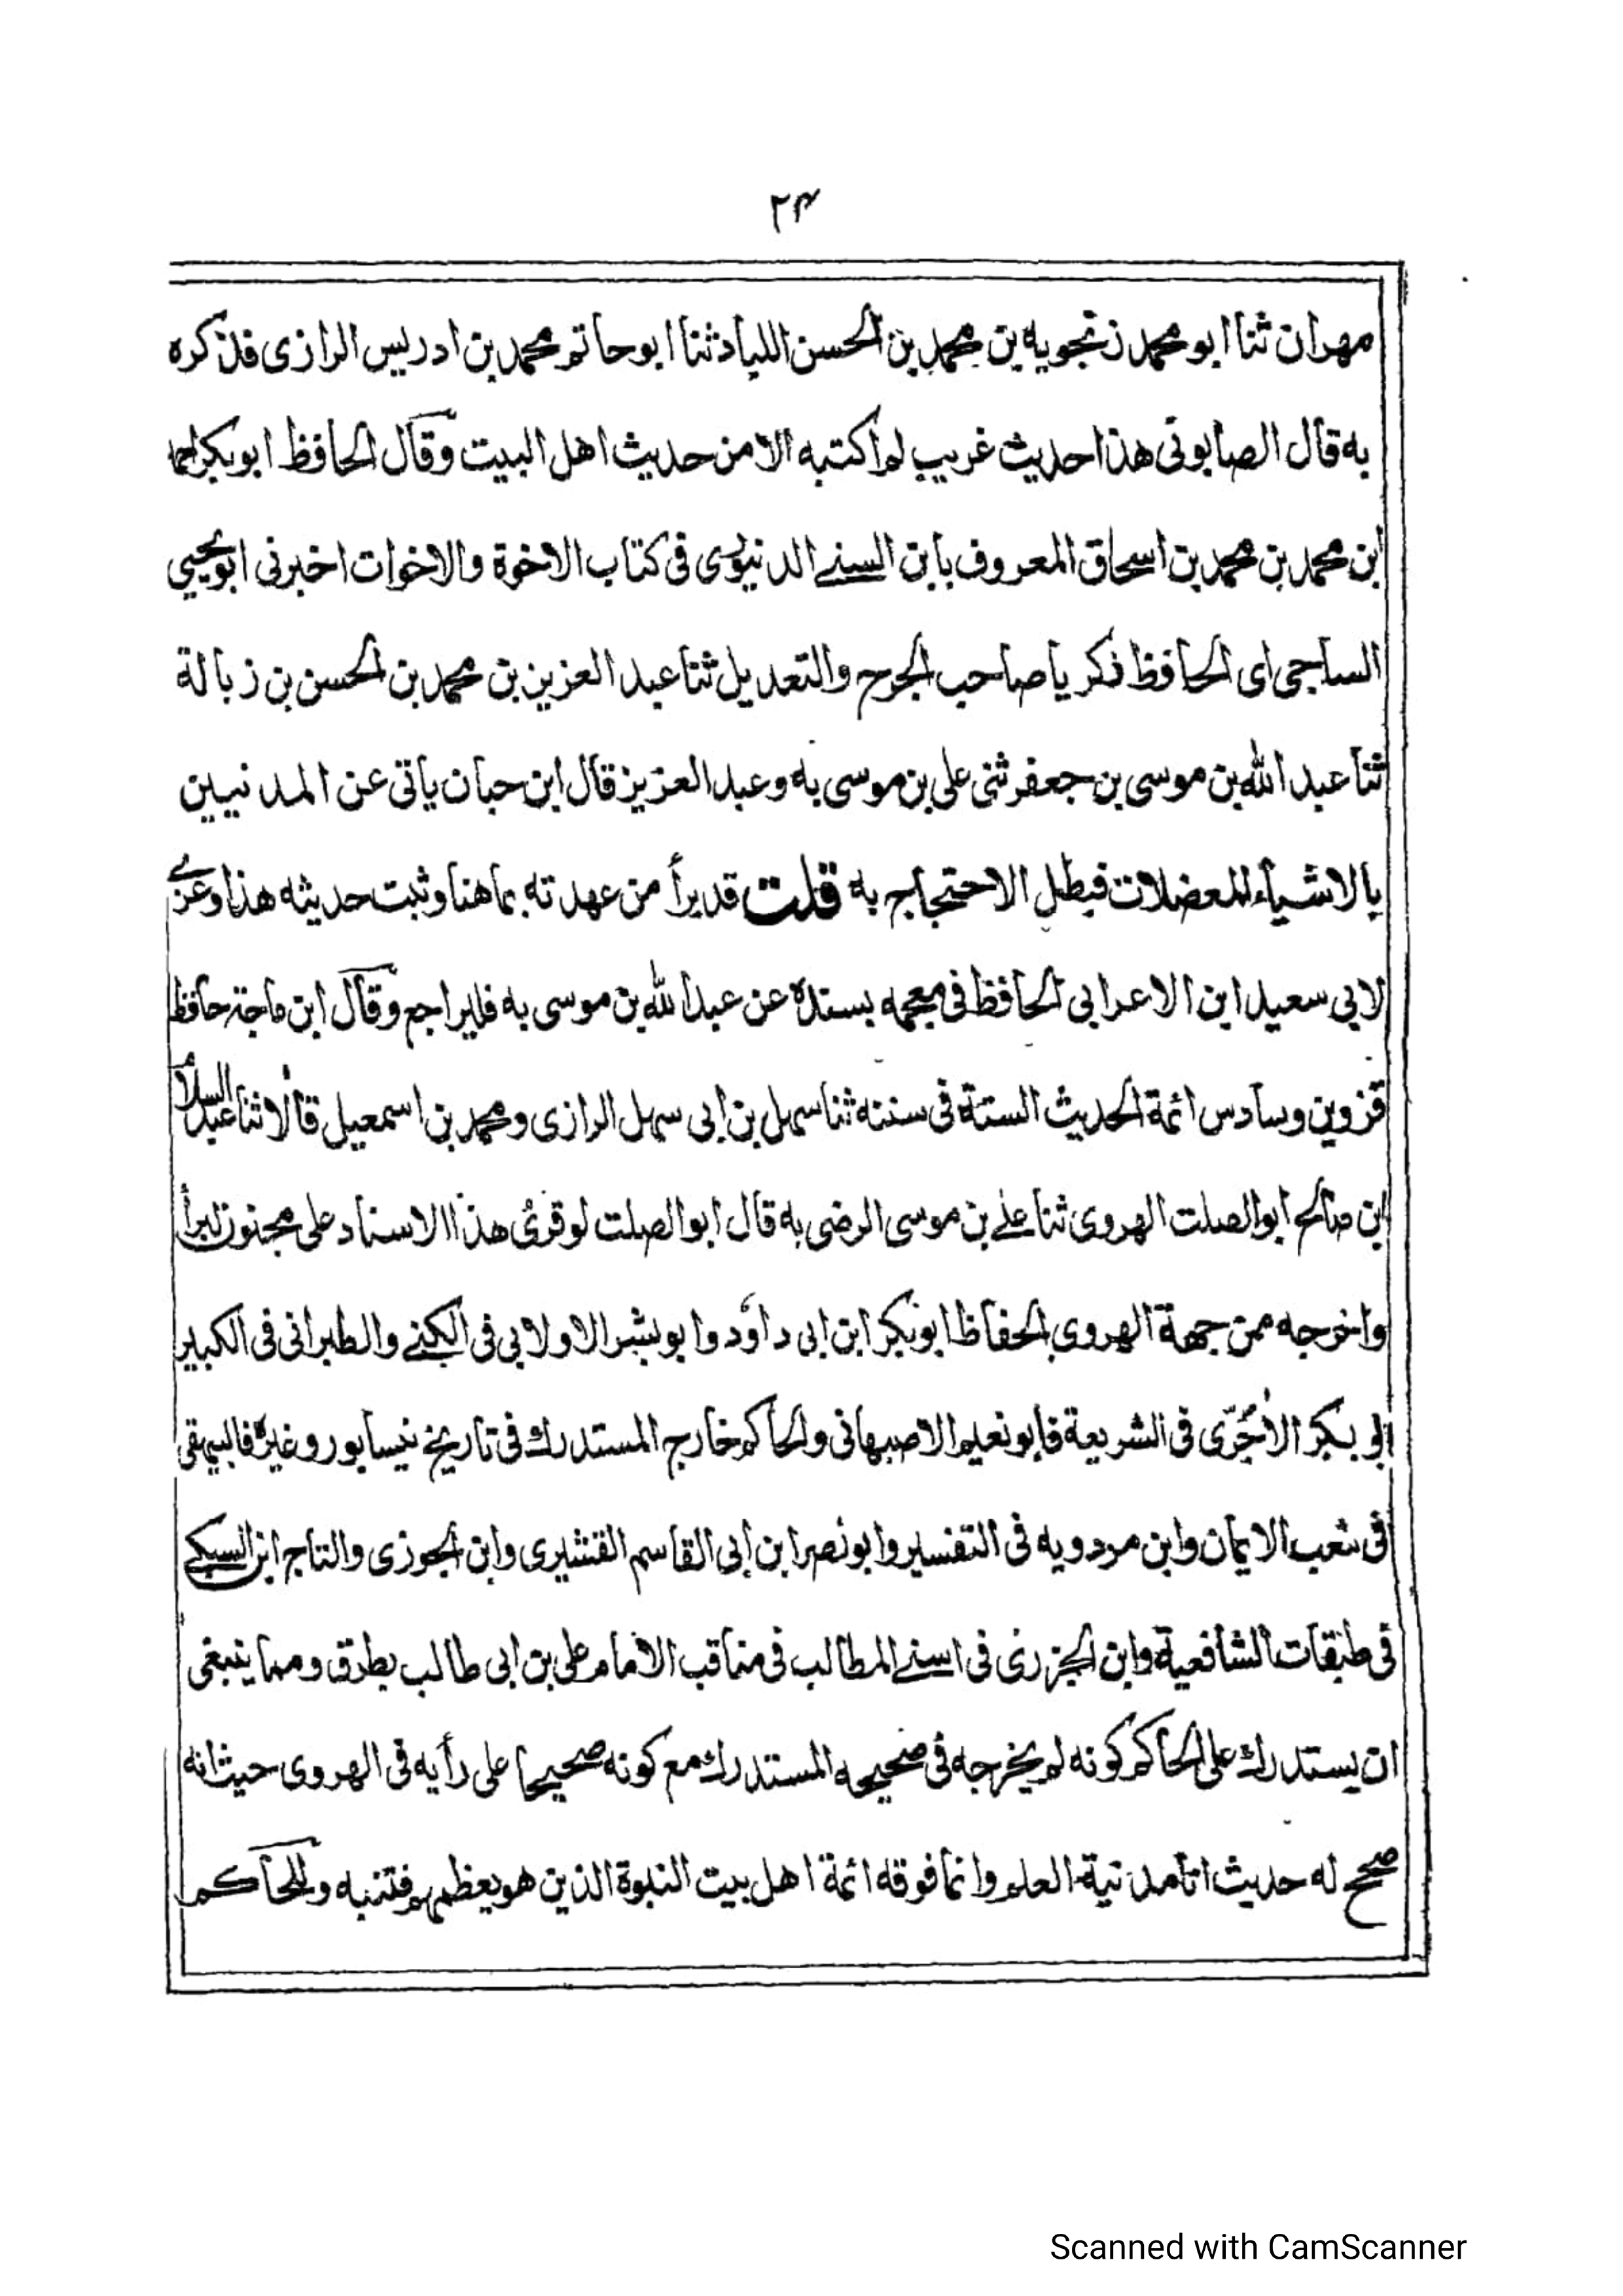 ٢٣
مهران ثنا ابو محمد زنجويه بن محمد بن الحسن اللباد ثنا ابو حاتم محمد بن ادريس الرازى فذكره
به قال الصابونى هذا حديث غريب لم اكتبه الا من حديث اهل البيت وقال الحافظ ابو بكر احمد
ابن محمد بن محمد بن اسحاق المعروف بابن السنے الدنيورى فى كتاب الاخوة والاخوات اخبرنى ابو يحيي
الساجى اى الحافظ ذكريا صاحب الجرح والتعديل ثنا عبد العزيز بن محمد بن الحسن بن زبالة
ثنا عبد الله بن موسى بن جعفر ثنى على بن موسى به وعبد العزيز قال ابن حبان ياتى عن المدنيين
بالاشياء المعضلات فبطل الاحتجاج به قلت قد برأ من عهدته بما هنا وثبت حديثه هذا وعزے
لابى سعيد ابن الاعرابى الحافظ فى معجمه بسنده عن عبد الله بن موسى به فليراجع وقال ابن ماجة حافظ
قزوين وسادس ائمة الحديث الستة فى سننه ثنا سهل بن ابى سهل الرازى ومحمد بن اسمعيل قالا ثنا عبد السلام
ابن صالح ابو الصلت الهروى ثنا علے بن موسى الرضى به قال ابو الصلت لو قرئ هذا الاسناد على مجنون لبرأ
واخرجه من جهة الهروى الحفاظ ابو بكر ابن ابى داؤد وابو بشر الاولابى فى الكنے والطبرانى فى الكبير
ابو بكر الأجرّى فى الشريعة فابو نعيم الاصبهانى والحاكم خارج المستدرك فى تاريخ نيسابور وغيره فالبيهقى
فى شعب الايمان وابن مردويه فى التفسير وابو نصر ابن ابى القاسم القشيرى وابن الجوزى والتاج ابن السبكے
فى طبقات الشافعية وابن الجزرى فى اسنے المطالب فى مناقب الامام على بن ابى طالب بطرق ومما ينبغى
ان يستدرك على الحاكم كونه لم يخرجه فى صحيحه المستدرك مع كونه صحيحا على رأيه فى الهروى حيث انه
صحح له حديث انا مدنية العلم وانما فوقه ائمة اهل بيت النبوة الذين هو يعظمهم فتنبه وللحاكم
Scanned with CamScanner